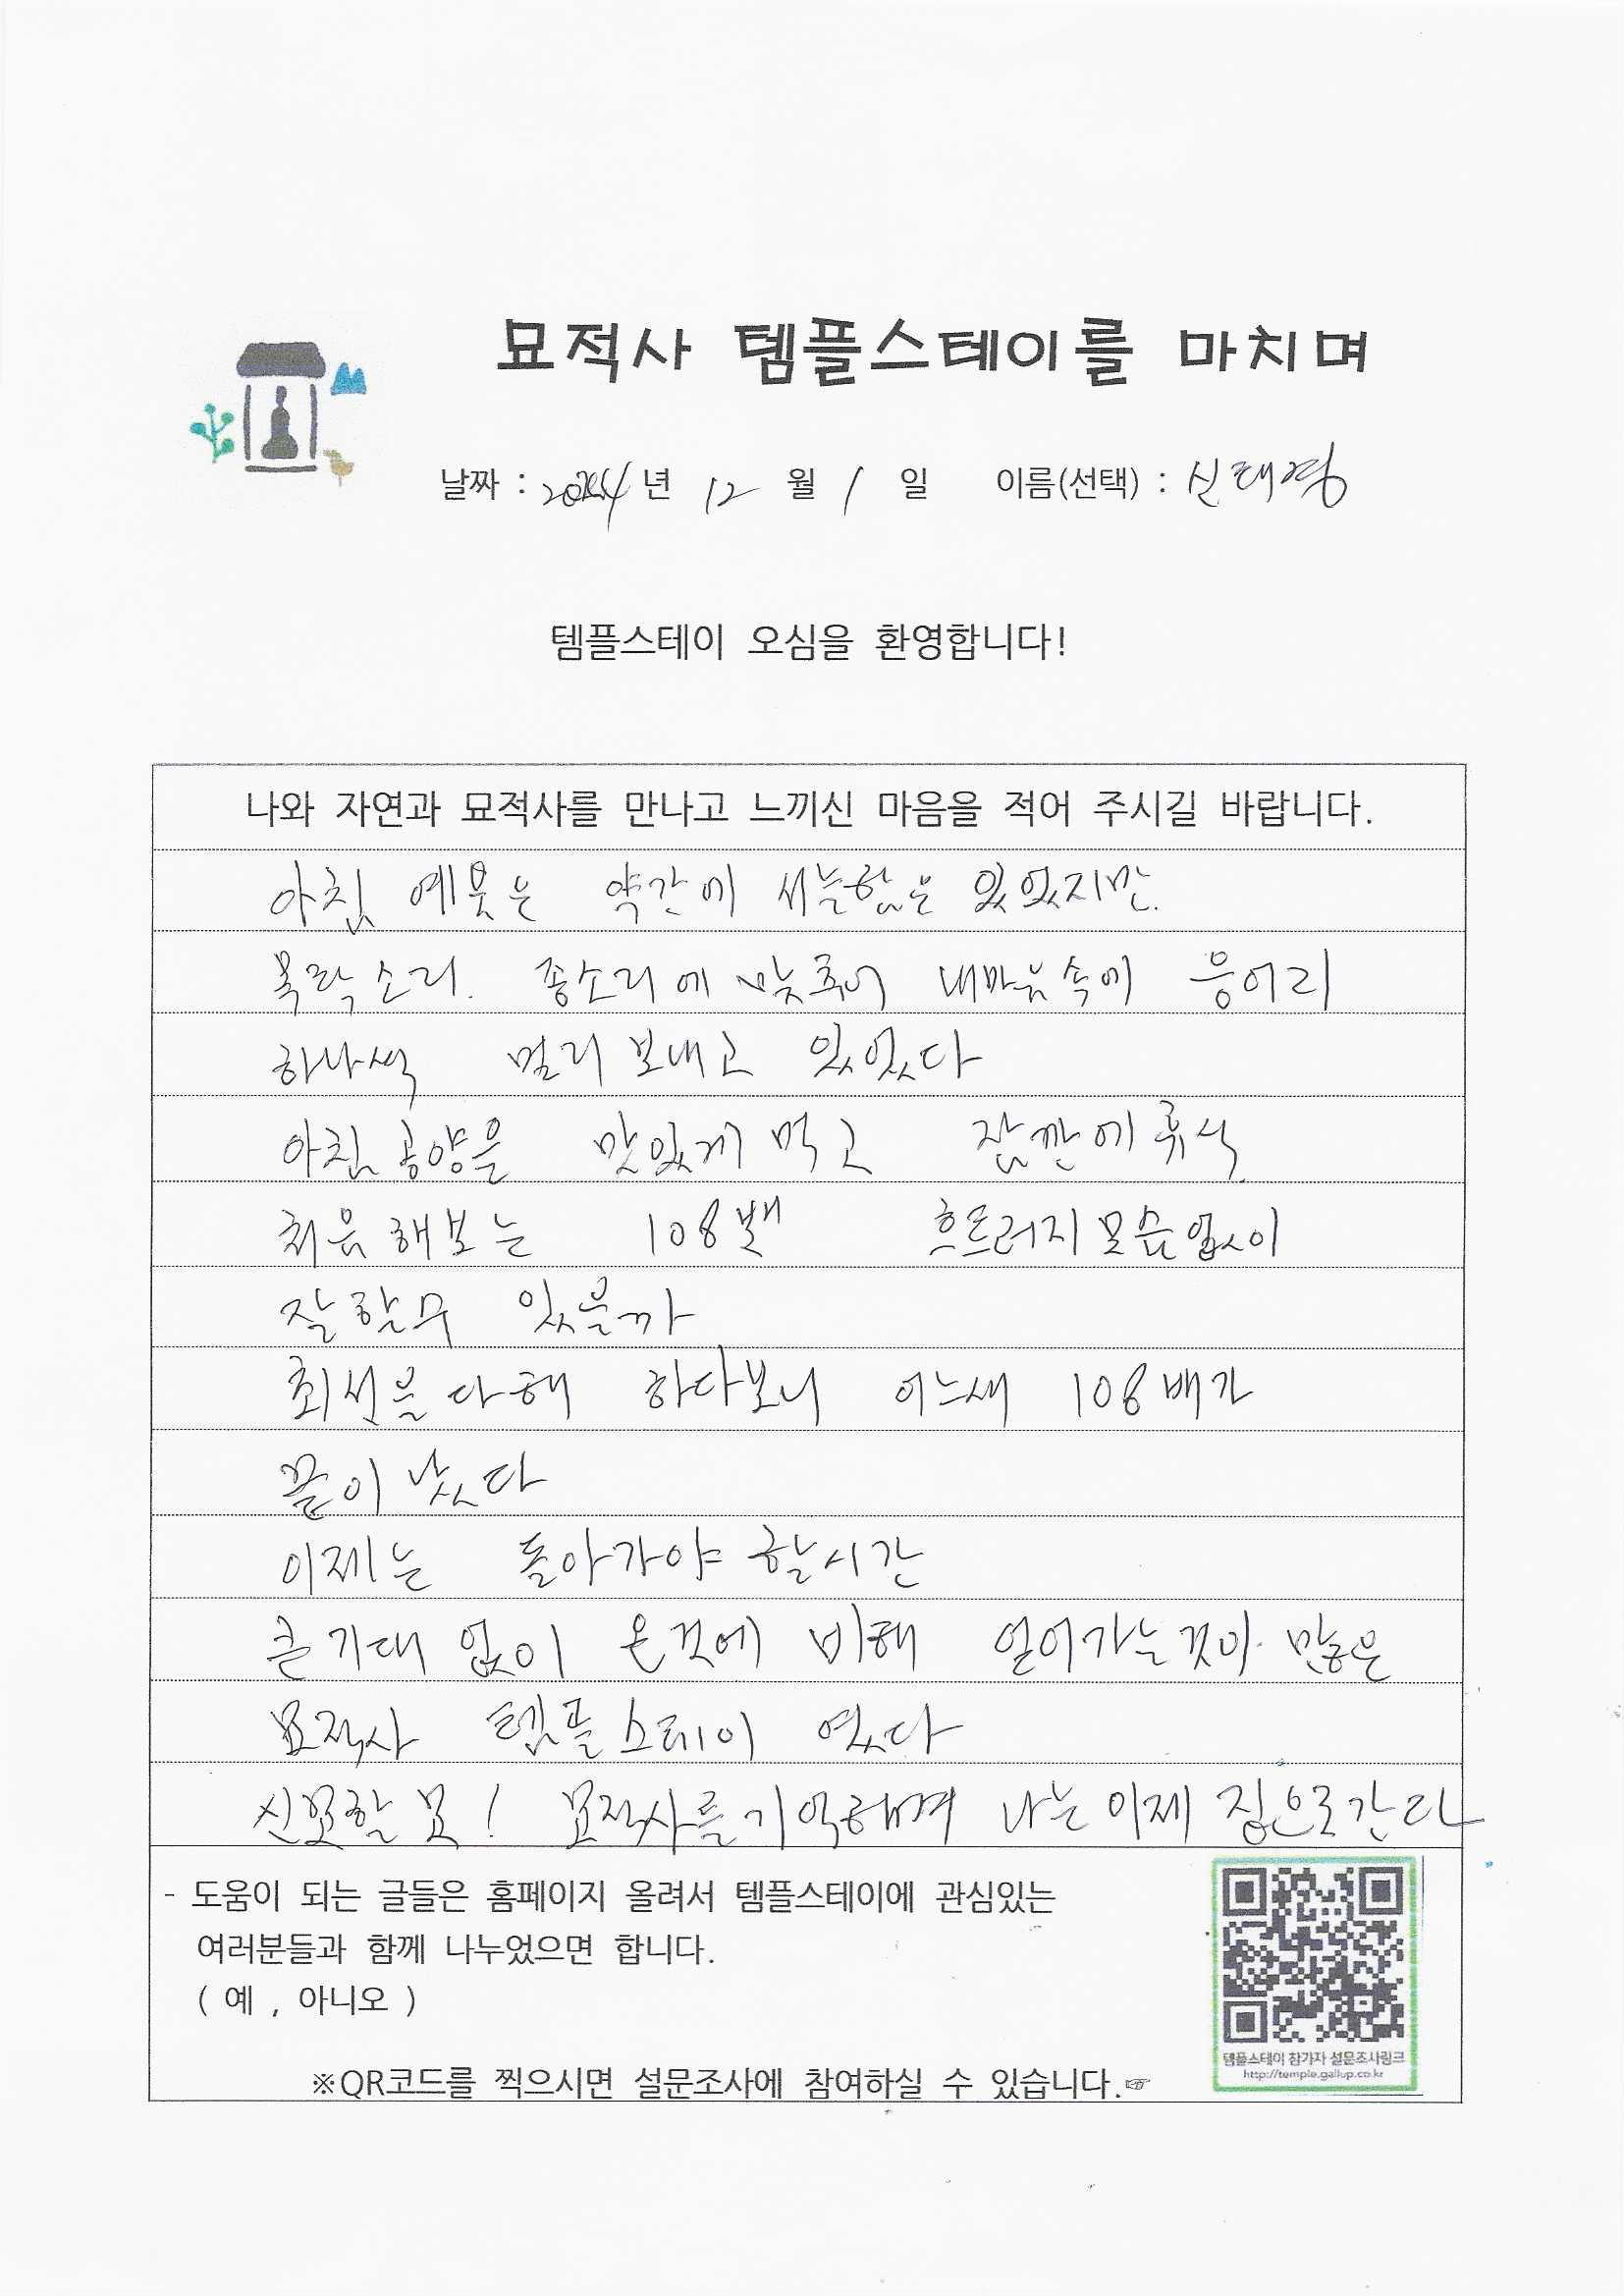 묘적사 템플스테이를 마치며
날짜 : 2024 년 12 월 1 일 이름(선택) : 신태영
템플스테이 오심을 환영합니다!
나와 자연과 묘적사를 만나고 느끼신 마음을 적어 주시길 바랍니다.
아침 예붓은 약간에 서늘함은 있었지만.
목탁소리. 종소리에 맞추어 내마음속에 응어리
하나씩 멀리 보내고 있었다
아침 공양을 맛있게 먹고 잠깐에 휴식
처음 해보는 108배 흐트러지모습없이
잘할수 있을까
최선을 다해 하다보니 어느새 108배가
끝이 났다
이제는 돌아가야 할시간
큰기대 없이 온것에 비해 얻어가는것이 많은
묘적사 템플스테이 였다
신묘할 묘! 묘적사를 기억하며 나는 이제 집으로간다
- 도움이 되는 글들은 홈페이지 올려서 템플스테이에 관심있는
여러분들과 함께 나누었으면 합니다.
( 예 , 아니오 )
템플스테이 참가자 설문조사링크
http://temple.gallup.co.kr
※QR코드를 찍으시면 설문조사에 참여하실 수 있습니다.☞